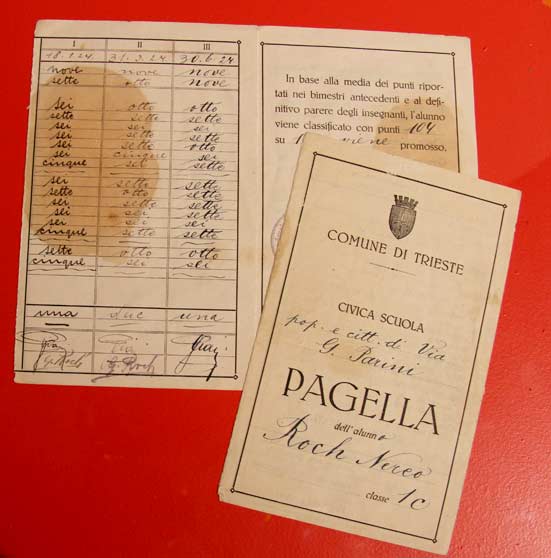 I II III
18.1.24 31.3.24 30.6.24
nove nove nove
sette otto nove
sei otto otto
sette sette sette
sei sei sei
sei sette sette
sei sette otto
sei cinque sei
cinque sei sette
sei sette sette
sette otto sette
sei sette sette
sei sei sette
sei sei sei
cinque sette sette
sette otto otto
cinque sei sei
una due una
G. Roch G. Roch
In base alla media dei punti ripor-
tati nei bimestri antecedenti e al defi-
nitivo parere degli insegnanti, l'alunno
viene classificato con punti 104
su viene promosso.
COMUNE DI TRIESTE
CIVICA SCUOLA
pop. e citt. di Via
G. Parini
PAGELLA
dell'alunno
Roch Nereo
classe 1c